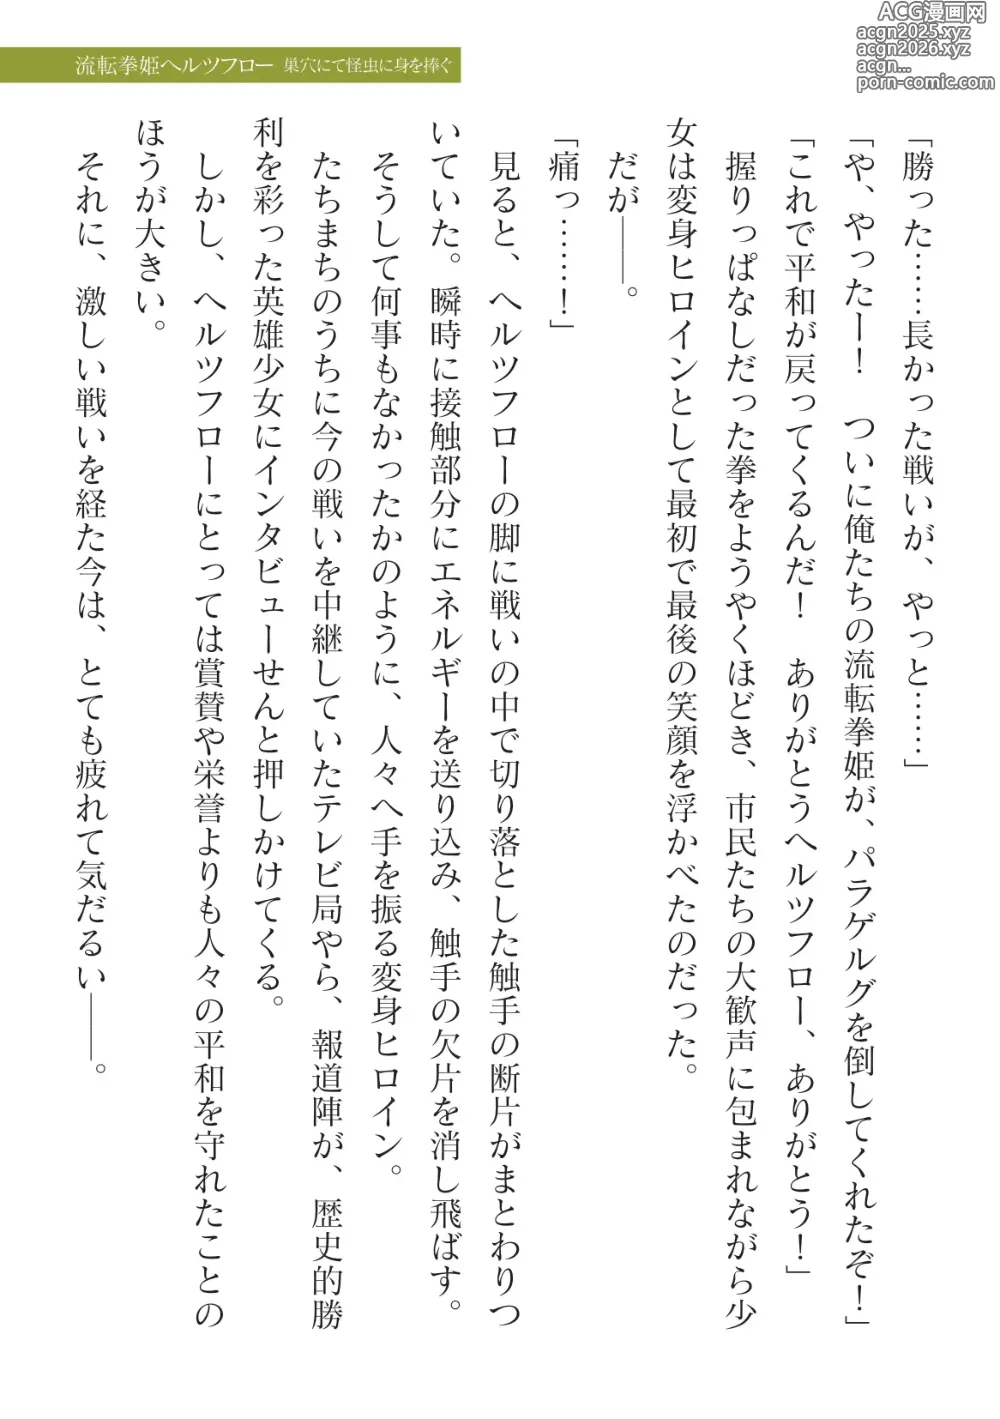 ACG漫画网
acgn2025.xyz
acgn2026.xyz
acgn...
porn-comic.com
流転拳姫ヘルツフロー 巣穴にて怪虫に身を捧ぐ
「勝った……長かった戦いが、やっと……」
「や、やったー！　ついに俺たちの流転拳姫が、パラゲルグを倒してくれたぞ！」
「これで平和が戻ってくるんだ！　ありがとうヘルツフロー、ありがとう！」
　握りっぱなしだった拳をようやくほどき、市民たちの大歓声に包まれながら少
女は変身ヒロインとして最初で最後の笑顔を浮かべたのだった。
　だが――。
「痛っ……！」
　見ると、ヘルツフローの脚に戦いの中で切り落とした触手の断片がまとわりつ
いていた。瞬時に接触部分にエネルギーを送り込み、触手の欠片を消し飛ばす。
　そうして何事もなかったかのように、人々へ手を振る変身ヒロイン。
　たちまちのうちに今の戦いを中継していたテレビ局やら、報道陣が、歴史的勝
利を彩った英雄少女にインタビューせんと押しかけてくる。
　しかし、ヘルツフローにとっては賞賛や栄誉よりも人々の平和を守れたことの
ほうが大きい。
　それに、激しい戦いを経た今は、とても疲れて気だるい――。